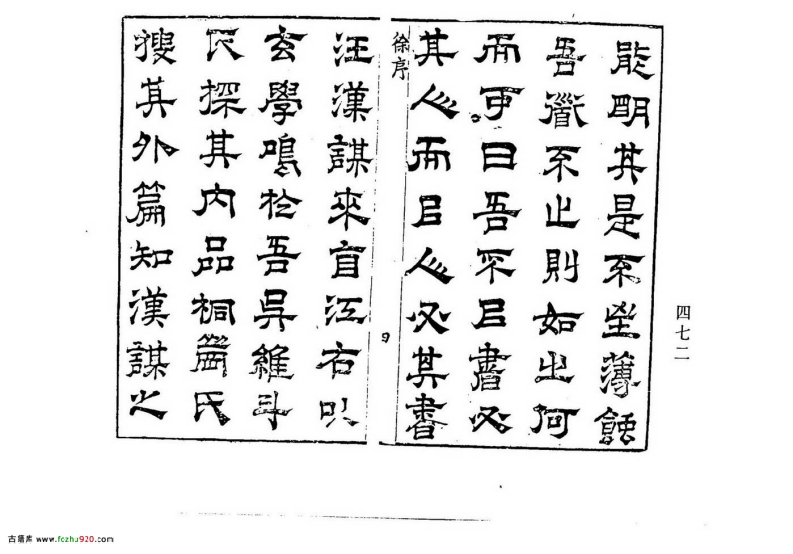 能明其是不薄蝕
吾道不止則如之何
而可曰吾不㠯書必
其人而㠯人必其書
徐序
汪漢謀來江右以
玄學鳴於吾吳維斗
氏探其內品桐氏
搜其外篇知漢謀之
四七二
古籍库 www.fczhu920.com